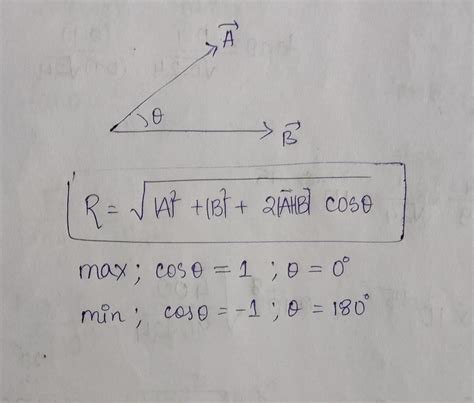 A⃗
θ
B⃗
R = √|A|² + |B|² + 2|A||B| cosθ
max ; cosθ = 1 ; θ = 0°
min ; cosθ = -1 ; θ = 180°